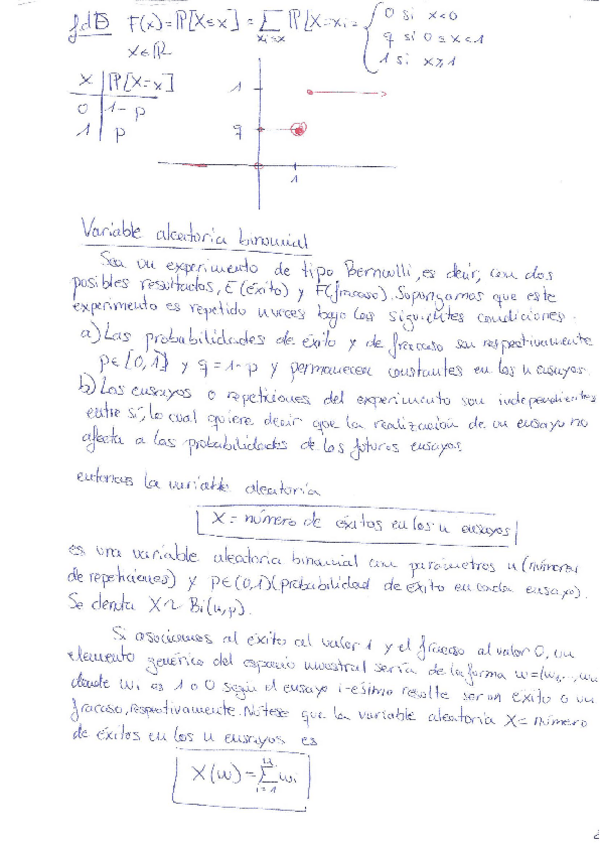 f.d.D F(x)=P[X≤x] = Σ P[X=xi = { 0 si x<0
xi≤x
x∈R
q si 0≤x<1
1 si x≥1
x | P[X=x]
0 | 1-p
1 | p
1
q
1
Variable aleatoria binomial
Sea un experimento de tipo Bernoulli, es decir, con dos
posibles resultados, E (éxito) y F (fracaso). Supongamos que este
experimento es repetido n veces bajo las siguientes condiciones:
a) Las probabilidades de éxito y de fracaso son respectivamente
p∈[0,1] y q=1-p y permanecen constantes en los n ensayos.
b) Los ensayos o repeticiones del experimento son independientes
entre sí, lo cual quiere decir que la realización de un ensayo no
afecta a las probabilidades de los futuros ensayos.
entonces la variable aleatoria
X = número de éxitos en los n ensayos
es una variable aleatoria binomial con parámetros n (número
de repeticiones) y p∈(0,1) (probabilidad de éxito en cada ensayo).
Se denota X~Bi(n,p).
Si asociamos al éxito el valor 1 y el fracaso al valor 0, un
elemento genérico del espacio muestral sería de la forma w=(w1,..,wn
donde wi es 1 o 0 según el ensayo i-ésimo resulte ser un éxito o un
fracaso, respectivamente. Nótese que la variable aleatoria X= número
de éxitos en los n ensayos es
X(w) = Σ wi
i=1